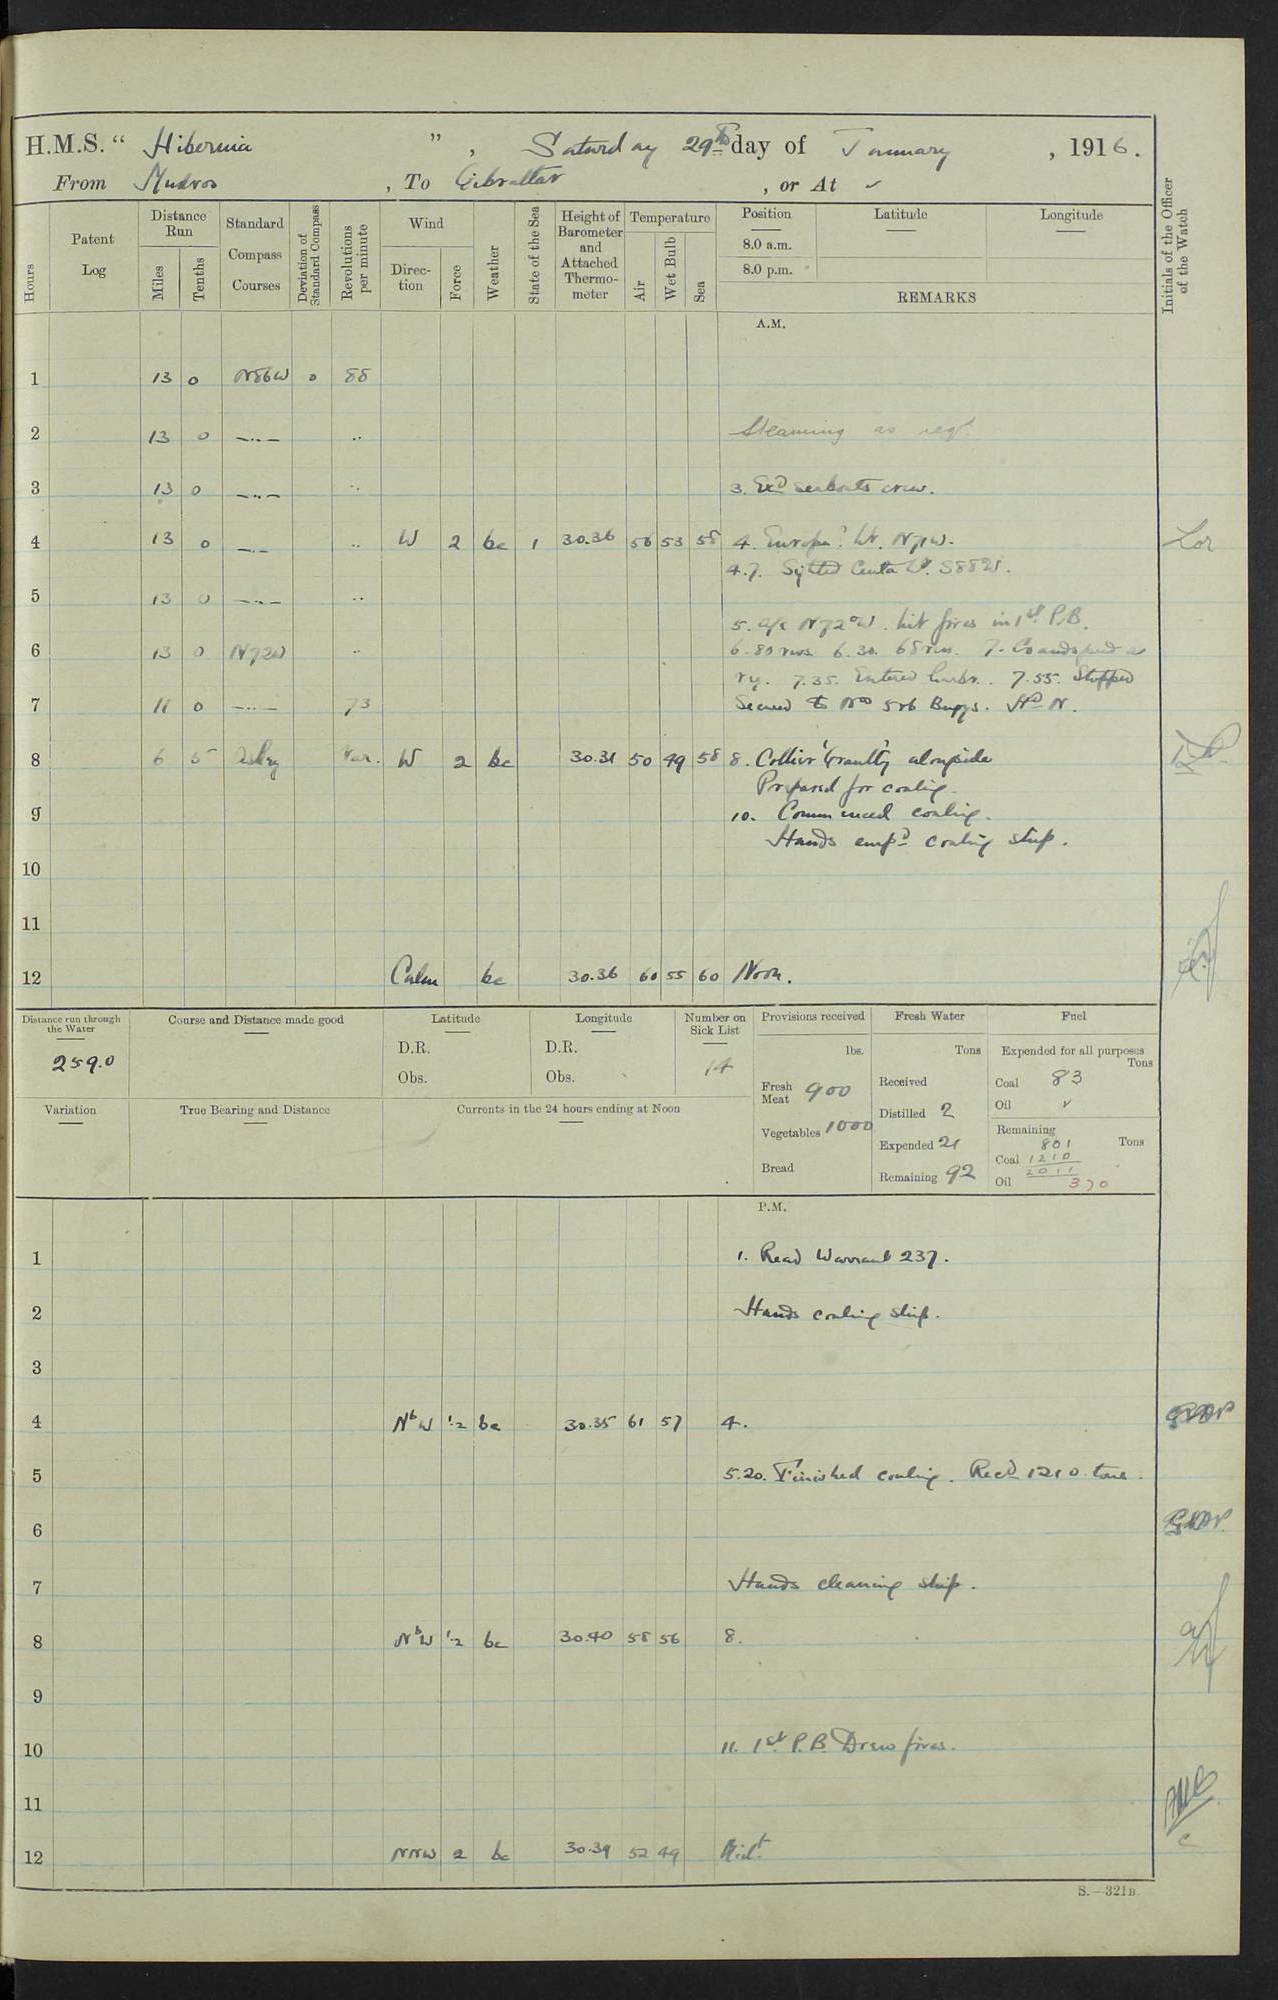 H.M.S. " Hibernia " , Saturday 29th day of January , 1916.
From Mudros , To Gibraltar , or At ✓
Hours
Patent Log
Distance Run
Miles
Tenths
Standard Compass Courses
Deviation of Standard Compass
Revolutions per minute
Wind
Direction
Force
Weather
State of the Sea
Height of Barometer and Attached Thermometer
Temperature
Air
Wet Bulb
Sea
Position
8.0 a.m.
8.0 p.m.
Latitude
Longitude
REMARKS
Initials of the Officer of the Watch
A.M.
1 13 0 N86W 0 88
2 13 0 —..— .. Steaming as reqd.
3 13 0 —..— .. 3. Exd seaboats crew.
4 13 0 —..— .. W 2 bc 1 30.36 56 53 58 4. Europa Lt. N71W.
4.7. Sighted Ceuta Lt. S88W.
5 13 0 —..— ..
5. a/c N72°W. Lit fires in 1st P.B.
6 13 0 N72W .. 6. 80 revs. 6.30. 68 revs. 7. Co and speed as
ry. 7.35. Entered harbr. 7.55. Stopped
7 11 0 —..— 73 Secured to Nos 5 & 6 Buoys. Hd N.
8 6 5 As ry Var. W 2 bc 30.31 50 49 58 8. Collier alongside
Prepared for coaling.
9 10. Commenced coaling.
Hands empd coaling ship.
10
11
12 Calm bc 30.36 60 55 60 Noon.
Distance run through the Water
259.0
Course and Distance made good
Latitude
D.R.
Obs.
Longitude
D.R.
Obs.
Number on Sick List
14
Provisions received
lbs.
Fresh Meat 900
Vegetables 1000
Bread
Fresh Water
Tons
Received
Distilled 2
Expended 21
Remaining 92
Fuel
Expended for all purposes
Tons
Coal 83
Oil ✓
Remaining
801 Tons
Coal 1210
2011
Oil 370
Variation
True Bearing and Distance
Currents in the 24 hours ending at Noon
P.M.
1 1. Read Warrant 237.
2 Hands coaling ship.
3
4 NbW 1.2 bc 30.35 61 57 4.
5 5.20. Finished coaling. Recd 1210 tons.
6
7 Hands cleaning ship.
8 NbW 1.2 bc 30.40 58 56 8.
9
10 11. 1st P.B. Drew fires.
11
12 NNW 2 bc 30.39 52 49 Midt.
S.—321B